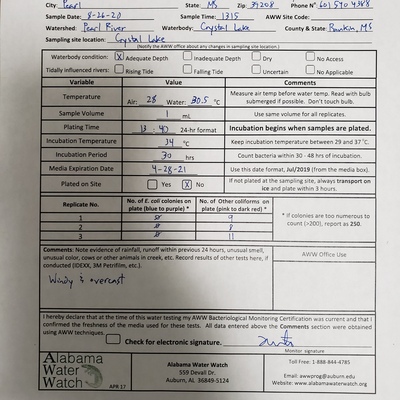 City: Pearl State: MS Zip: 39208 Phone N°
Sample Date: 8-26-20 Sample Time: 1315 AWW Site Code:
Watershed: Pearl River Waterbody: Crystal Lake County & State: Rankin, MS
Sampling site location: Crystal Lake
(Notify the AWW office about any changes in sampling site location.)
Waterbody condition: X Adequate Depth Inadequate Depth Dry No Access
Tidally influenced rivers: Rising Tide Falling Tide Uncertain No Applicable
Variable Value Comments
Temperature Air: 28 Water: 30.5 °C Measure air temp before water temp. Read with bulb submerged if possible. Don't touch bulb.
Sample Volume 1 mL Use same volume for all replicates.
Plating Time 13:40 24-hr format Incubation begins when samples are plated.
Incubation Temperature 34 °C Keep incubation temperature between 29 and 37 °C.
Incubation Period 30 hrs Count bacteria within 30 - 48 hrs of incubation.
Media Expiration Date 4-28-21 Use this date format, Jul/2019 (from the media box).
Plated on Site Yes X No If not plated at the sampling site, always transport on ice and plate within 3 hours.
Replicate No. No. of E. coli colonies on plate (blue to purple) * No. of Other coliforms on plate (pink to dark red) *
1 0 9
2 0 8
3 0 11
* If colonies are too numerous to count (>200), report as 250.
Comments: Note evidence of rainfall, runoff within previous 24 hours, unusual smell,
unusual color, cows or other animals in creek, etc. Record results of other tests here, if
conducted (IDEXX, 3M Petrifilm, etc.)
AWW Office Use
Windy & overcast
I hereby declare that at the time of this water testing my AWW Bacteriological Monitoring Certification was current and that I
confirmed the freshness of the media used for these tests. All data entered above the Comments section were obtained
using AWW techniques.
Check for electronic signature.
Monitor signature
Alabama
Water
Watch
APR 17
Alabama Water Watch
559 Devall Dr.
Auburn, AL 36849-5124
Toll Free: 1-888-844-4785
Email: awwprog@auburn.edu
Website: www.alabamawaterwatch.org